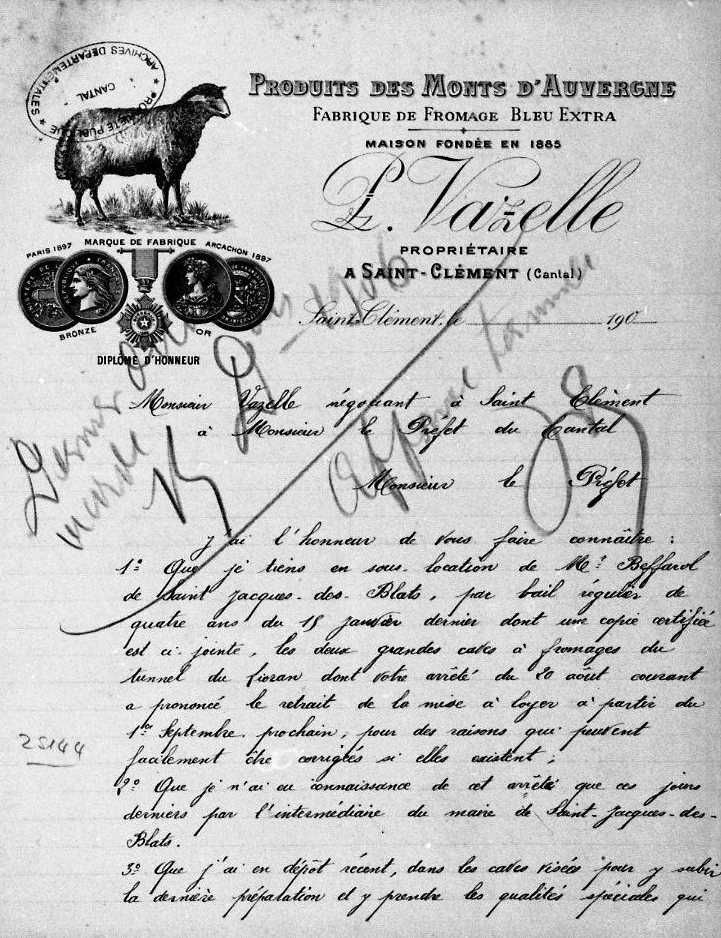 ARCHIVES DÉPARTEMENTALES
CANTAL
PROPRIÉTÉ PUBLIQUE
PRODUITS DES MONTS D'AUVERGNE
FABRIQUE DE FROMAGE BLEU EXTRA
MAISON FONDÉE EN 1885
P. Vazelle
PROPRIÉTAIRE
A SAINT-CLÉMENT (Cantal)
PARIS 1897
MARQUE DE FABRIQUE
ARCACHON 1897
BRONZE
OR
DIPLOME D'HONNEUR
Saint-Clément, le 190
1906
Monsieur Vazelle négociant à Saint Clément
à Monsieur le Préfet du Cantal
Monsieur le Préfet
J'ai l'honneur de vous faire connaître :
1º Que je tiens en sous-location de Mr Beffarol
de Saint Jacques-des-Blats, par bail régulier de
quatre ans du 15 janvier dernier dont une copie certifiée
est ci-jointe, les deux grandes caves à fromages du
tunnel du Lioran dont votre arrêté du 20 août courant
a prononcé le retrait de la mise à loyer à partir du
1er Septembre prochain, pour des raisons qui peuvent
facilement être corrigées si elles existent ;
2º Que je n'ai eu connaissance de cet arrêté que ces jours
derniers par l'intermédiaire du maire de Saint-Jacques-des-
Blats.
3º Que j'ai en dépôt récent, dans les caves visées pour y subir
la dernière préparation et y prendre les qualités spéciales qui
25144